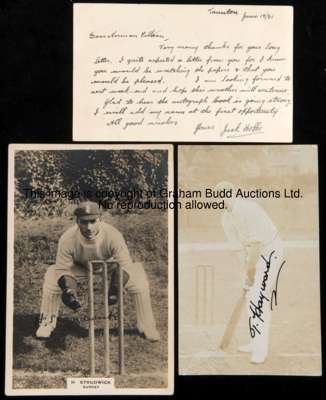 Taunton
June 19/31
Dear Norman
Very many thanks for your long
letter. I quite expected a letter from you for I knew
you would be watching the papers & that you
would be pleased. I am looking forward to
next week-end and hope this weather will continue.
Glad to hear the autograph book is going strong
I will add my name at the first opportunity
All good wishes
Yours Jack Hobbs
This image is copyright of Graham Budd Auctions Ltd.
No reproduction allowed.
T. Hayward
H STRUDWICK
SURREY